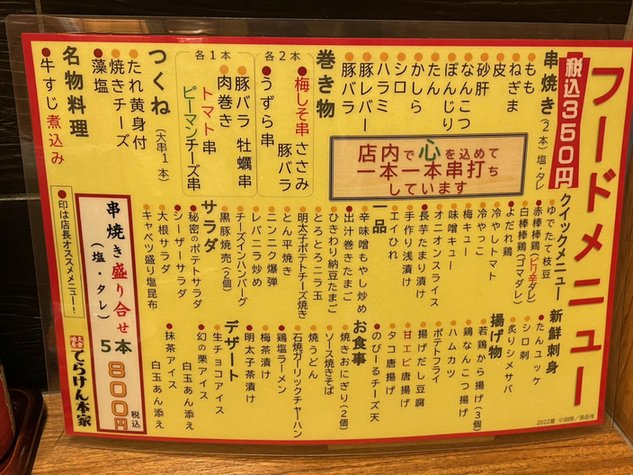 フードメニュー
税込350円
串焼き(2本)塩・タレ
もも
ねぎま
皮
砂肝
なんこつ
ぼんじり
たん
かしら
シロ
ハラミ
豚レバー
豚バラ
店内で心を込めて
一本一本串打ち
しています
巻き物
各2本
梅しそ串 ささみ
豚バラ
うずら串
各1本
豚バラ 牡蠣串
肉巻き
トマト串
ピーマンチーズ串
つくね(大串1本)
たれ黄身付
焼きチーズ
藻塩
名物料理
牛すじ煮込み
クイックメニュー
ゆでたて枝豆
赤棒棒鶏(ピリ辛ダレ)
白棒棒鶏(ゴマダレ)
よだれ鶏
冷やしトマト
冷やっこ
梅キュー
味噌キュー
オニオンスライス
長芋たまり漬け
手作り浅漬け
エイひれ
一品
辛味噌もやし炒め
出汁巻きたまご
ひきわり納豆たまご
とろとろニラ玉
明太子ポテトチーズ焼き
とん平焼き
ニンニク爆弾
レバニラ炒め
チーズインハンバーグ
黒豚焼売(2個)
サラダ
秘密のポテトサラダ
シーザーサラダ
大根サラダ
キャベツ盛り塩昆布
新鮮刺身
たんユッケ
シロ刺
炙りシメサバ
揚げ物
若鶏から揚げ(3個)
鶏なんこつ揚げ
ハムカツ
ポテトフライ
揚げだし豆腐
甘エビ唐揚げ
タコ唐揚げ
のびーるチーズ天
お食事
焼きおにぎり(2個)
ソース焼きそば
焼うどん
石焼ガーリックチャーハン
鶏塩ラーメン
梅茶漬け
明太子茶漬け
デザート
生チョコアイス
幻の栗アイス
白玉あん添え
抹茶アイス
白玉あん添え
●印は店長オススメメニュー!
串焼き盛り合せ
(塩・タレ)
5本800円税込
てらけん本家
2022夏 小田原/新百合